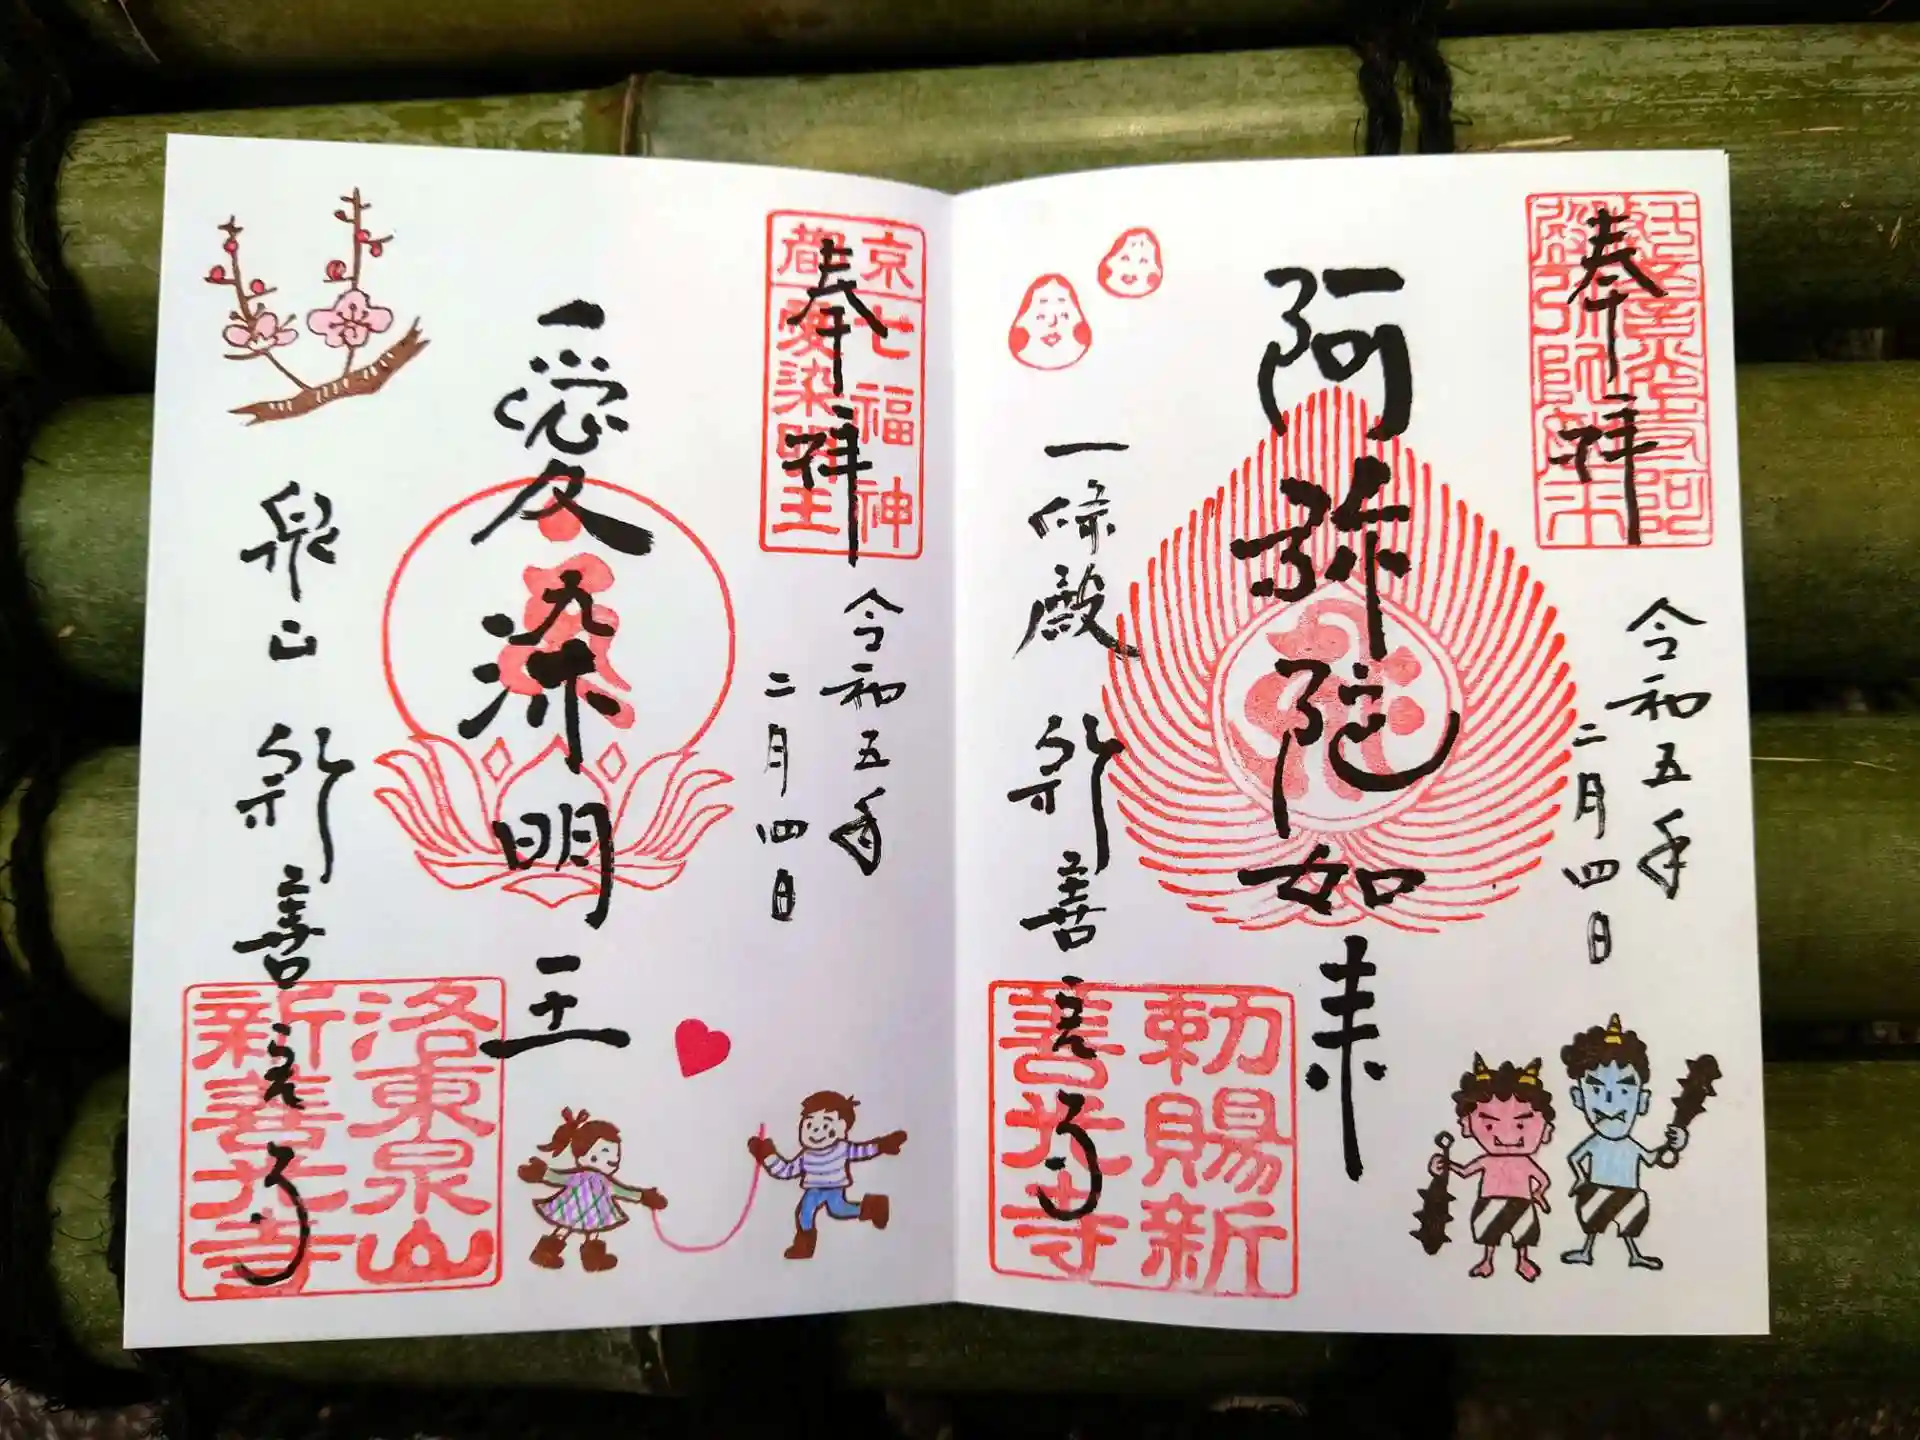 奉拝
令和五年
二月四日
阿弥陀如来
一條殿 新善光寺
勅賜新
善光寺
奉拝
京都
七福神
愛染明王
令和五年
二月四日
愛染明王
泉山 新善光寺
洛東泉山
新善光寺